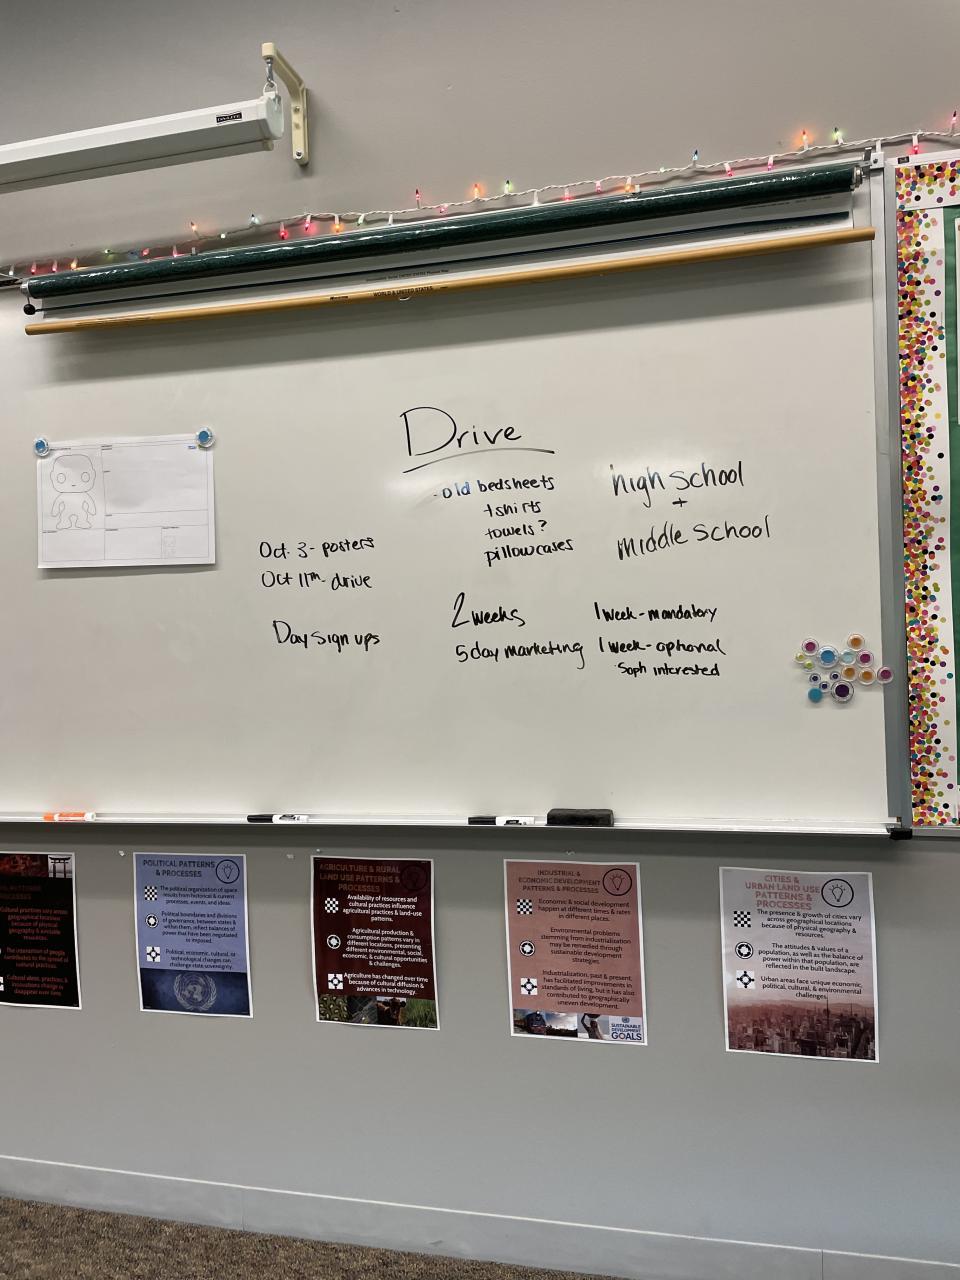 DA-LITE
WORLD & UNITED STATES
Drive
- old bedsheets
tshirts
towels?
pillowcases
high school
+
middle school
Oct. 3 - posters
Oct 11th - drive
Day sign ups
2 weeks
5 day marketing
1 week - mandatory
1 week - optional
Soph interested
POLITICAL PATTERNS
& PROCESSES
The political organization of space
results from historical & current
processes, events, and ideas.
Political boundaries and divisions
of governance, between states &
within them, reflect balances of
power that have been negotiated
or imposed.
Political, economic, cultural, or
technological changes can
challenge state sovereignty.
AGRICULTURE & RURAL
LAND USE PATTERNS &
PROCESSES
Availability of resources and
cultural practices influence
agricultural practices & land-use
patterns.
Agricultural production &
consumption patterns vary in
different locations, presenting
different environmental, social,
economic, & cultural opportunities
& challenges.
Agriculture has changed over time
because of cultural diffusion &
advances in technology.
INDUSTRIAL &
ECONOMIC DEVELOPMENT
PATTERNS & PROCESSES
Economic & social development
happen at different times & rates
in different places.
Environmental problems
stemming from industrialization
may be remedied through
sustainable development
strategies.
Industrialization, past & present,
has facilitated improvements in
standards of living, but it has also
contributed to geographically
uneven development.
SUSTAINABLE
DEVELOPMENT
GOALS
CITIES &
URBAN LAND USE
PATTERNS &
PROCESSES
The presence & growth of cities vary
across geographical locations
because of physical geography &
resources.
The attitudes & values of a
population, as well as the balance of
power within that population, are
reflected in the built landscape.
Urban areas face unique economic,
political, cultural, & environmental
challenges.